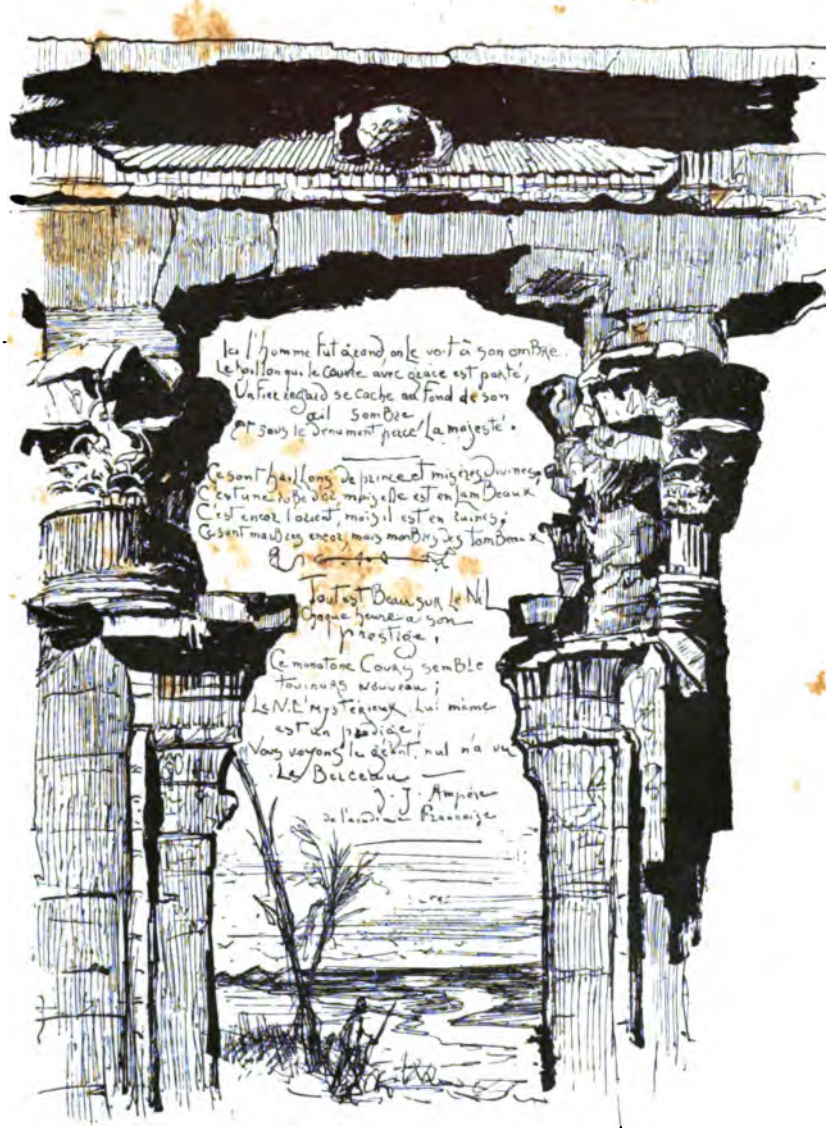 Ici l'homme fut grand, on le voit à son ombre.
Le haillon qui le couvre avec grace est porté,
Un fier regard se cache au fond de son
œil sombre
Et sous le denument perce la majesté.
Ce sont haillons de prince et misères divines,
C'est une robe d'or mais elle est en lambeaux
C'est encor l'orient, mais il est en ruines;
Ce sont marbres encor, mais marbres des tombeaux
Tout est Beau sur Le NiL
Chaque heure a son
prestige,
Ce monotone Cours semble
toujours nouveau;
Le NiL mystérieux Lui même
est un prodige;
Vous voyons le géant, nul n'a vu
Le Berceau —
J. J. Ampère
de l'académie Française